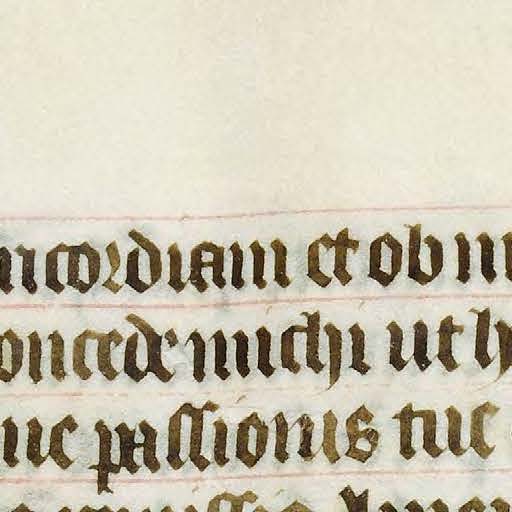 icordiam et ob in
oncede michi ut h
uc passionis tuc